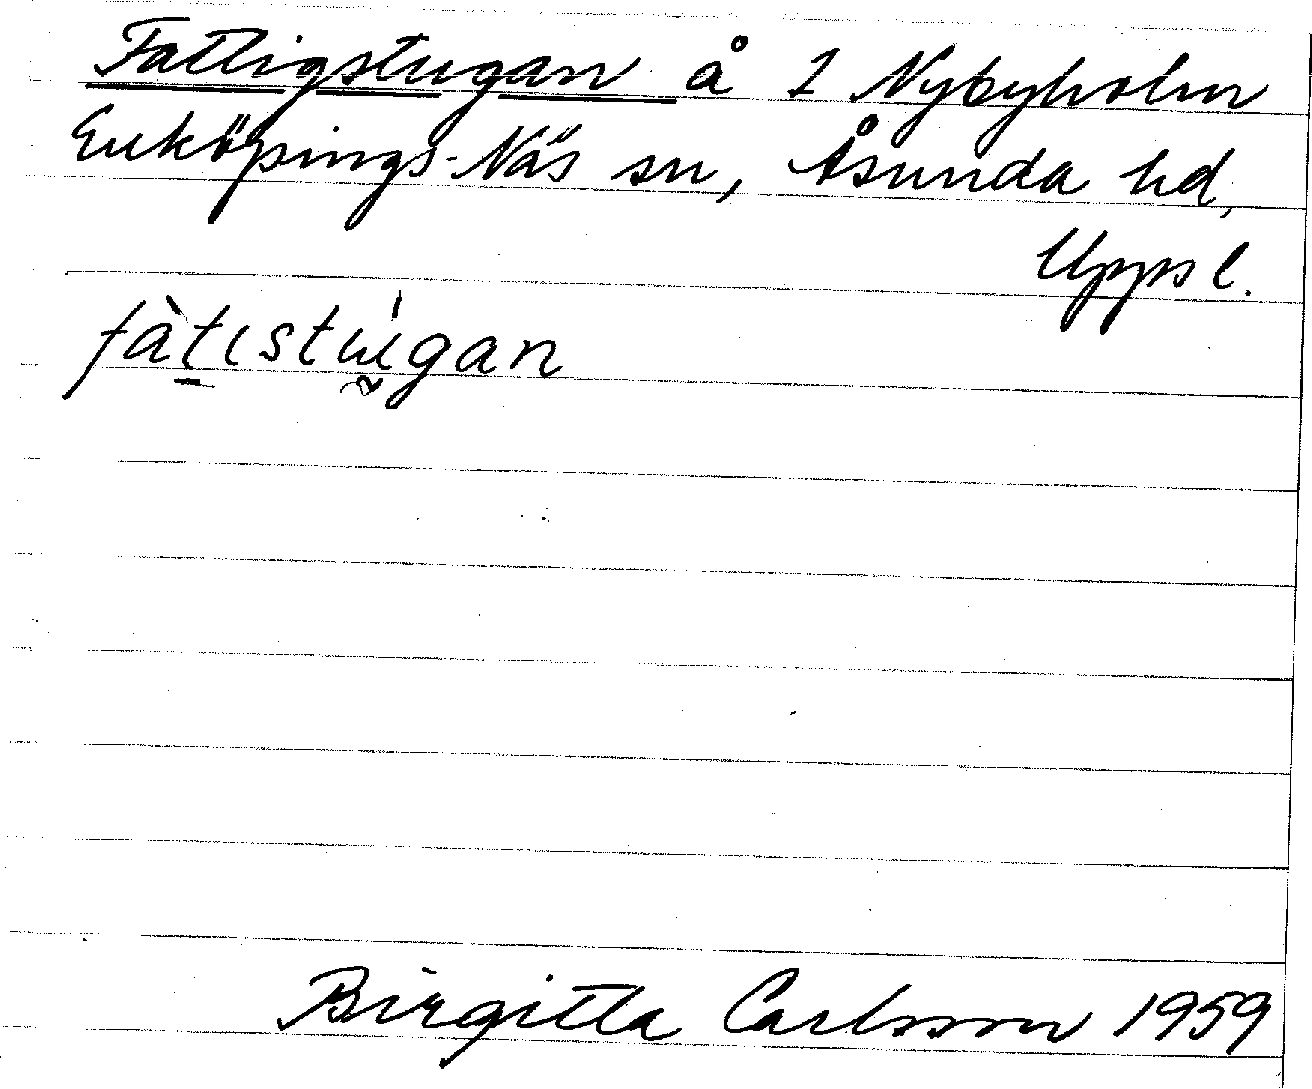 Fattigstugan å 1 Nybyholm
Enköpings-Näs sn, Åsunda hd,
Upps l.
fàtɩstùgan
Birgitta Carlsson 1959